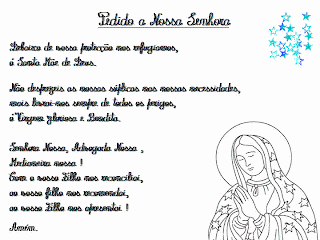 Pedido a Nossa Senhora
Debaixo de vossa protecção nos refugiamos,
ó Santa Mãe de Deus.
Não desprezeis as nossas súplicas nas nossas necessidades,
mais livrai-nos sempre de todos os perigos,
ó Virgem gloriosa e Bendita.
Senhora Nossa, Advogada Nossa ,
Medianeira nossa !
Com o vosso Filho nos reconciliai,
ao vosso filho nos recomendai,
ao vosso Filho nos apresentai !
Amém.